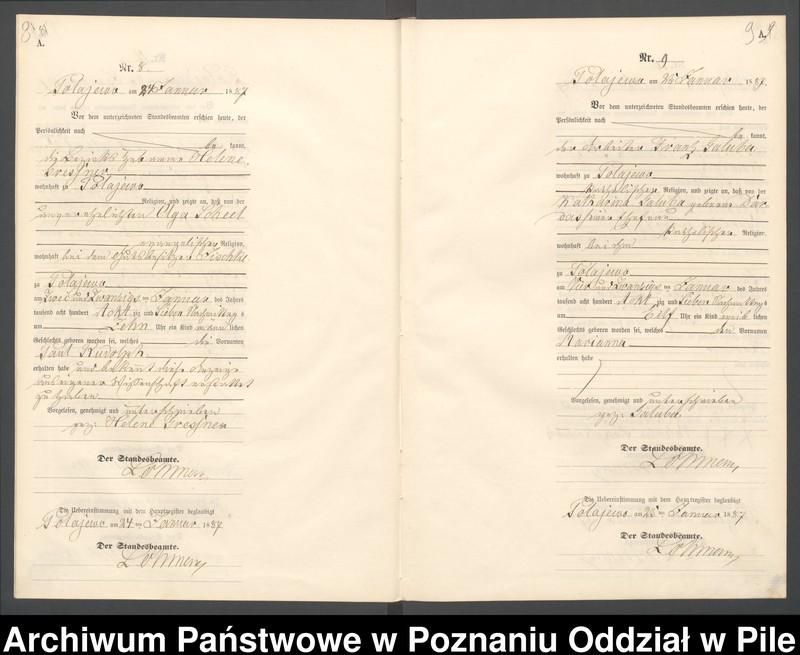 8
A.
Nr. 8.
Polajewo am 24 Januar 1887
Vor dem unterzeichneten Standesbeamten erschien heute, der
Persönlichkeit nach
be kannt,
die Bezirks Hebamme Helene
Gressner
wohnhaft zu Polajewo
Religion, und zeigte an, daß von der
unverehelichten Olga
evangelischer Religion,
wohnhaft bei dem
zu Polajewo
am zwei und zwanzigsten Januar des Jahres
tausend acht hundert Acht zig und sieben Nachmittags
um Zehn Uhr ein Kind männ lichen
Geschlechts geboren worden sei, welches die Vornamen
Paul Rudolph
erhalten habe und bekennt diese Anzeige
aus eigener Wissenschaft erstattet
zu haben.
Vorgelesen, genehmigt und unterschrieben
gez. Helene Gressner
Der Standesbeamte.
Die Uebereinstimmung mit dem Hauptregister beglaubigt
Polajewo am 24 ten Januar 1887
Der Standesbeamte.
9
A.
Nr. 9
Polajewo am Januar 1887
Vor dem unterzeichneten Standesbeamten erschien heute, der
Persönlichkeit nach
be kannt,
der Arbeiter Franz Galuba
wohnhaft zu Polajewo
katholischer Religion, und zeigte an, daß von der
Katharina Galuba geborene
seiner Ehefrau
katholischer Religion,
wohnhaft bei ihm
zu Polajewo
am vier und zwanzigsten Januar des Jahres
tausend acht hundert Acht zig und sieben Nachmittags
um Elf Uhr ein Kind weib lichen
Geschlechts geboren worden sei, welches den Vornamen
Marianna
erhalten habe
Vorgelesen, genehmigt und unterschrieben
gez. Galuba
Der Standesbeamte.
Die Uebereinstimmung mit dem Hauptregister beglaubigt
Polajewo am ten Januar 1887
Der Standesbeamte.
Archiwum Państwowe w Poznaniu Oddział w Pile